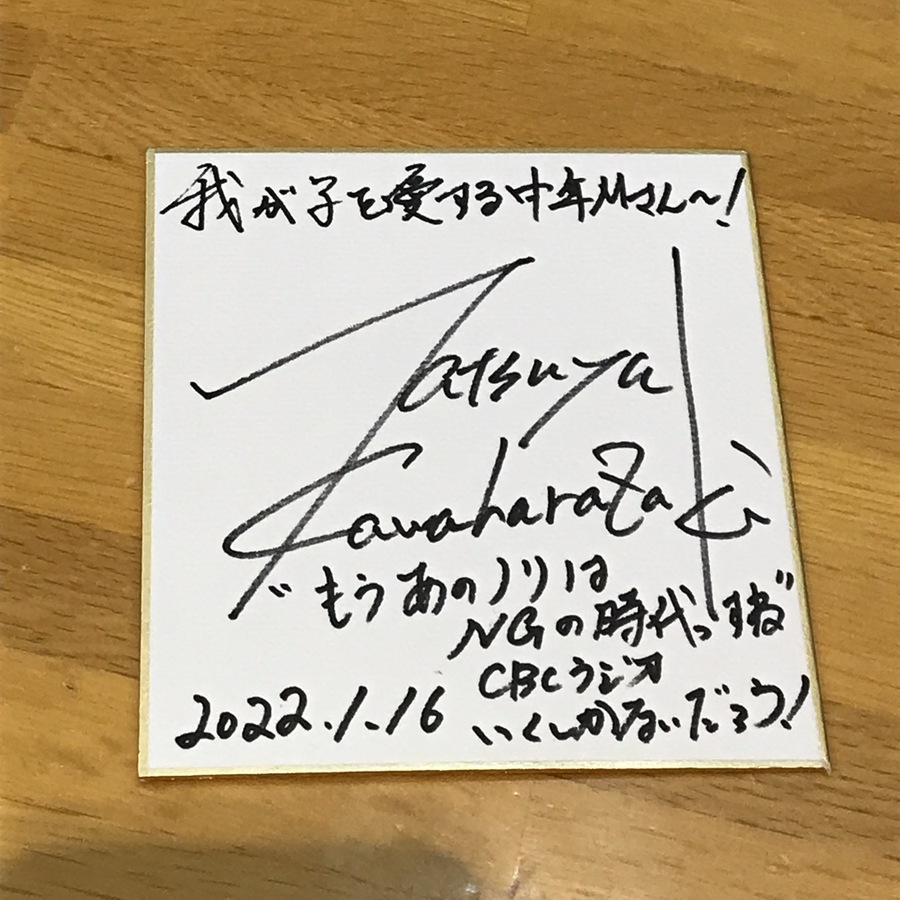 我が子を愛する中年Mさん〜!
Tatsuya
Kawaharazaki
"もうあのノリは
NGの時代っすね"
CBCラジオ
いくしかないだろう!
2022.1.16